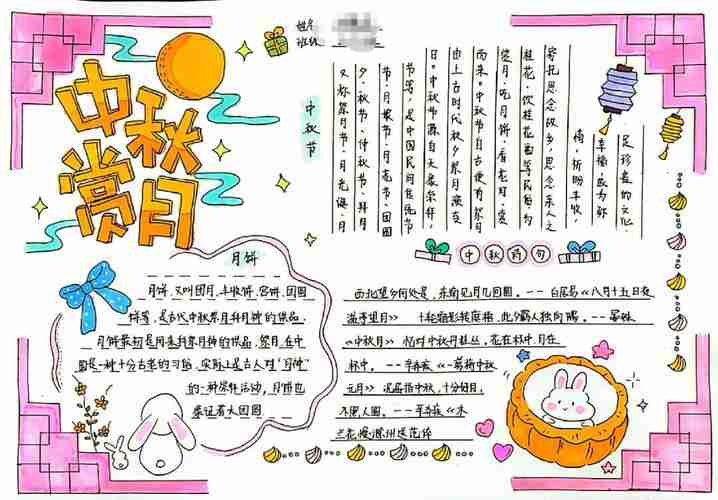 姓名
班级
中秋
赏月
中秋节
又称祭月节、月光诞、月
夕、秋节、仲秋节、拜月
节、月娘节、月亮节、团圆
节等,是中国民间传统节
日。中秋节源自天象崇拜,
由上古时代秋夕祭月演变
而来。中秋节自古便有祭月
赏月、吃月饼、看花灯、赏
桂花、饮桂花酒等民俗,为
寄托思念故乡,思念亲人之
情,祈盼丰收、
幸福,成为弥
足珍贵的文化
月饼
月饼,又叫团月、丰收饼、宫饼、团圆
饼等,是古代中秋祭拜月神的供品,
月饼最初是用来拜祭月神的供品,祭月,在中
国是一种十分古老的习俗,实际上是古人对"月神"
的一种崇拜活动,月饼也
象征着大团圆
中秋诗句
西北望乡何处是,东南见月几回圆。--白居易《八月十五日夜
湓亭望月》 十轮霜影转庭梧,此夕羁人独向隅。--晏殊
《中秋月》 恰对中秋丹桂丛,花在杯中,月在
杯中。--辛弃疾《一剪梅中秋
元月》 况屈指中秋,十分好月,
不照人圆。--辛弃疾《木
兰花慢滁州送范倅